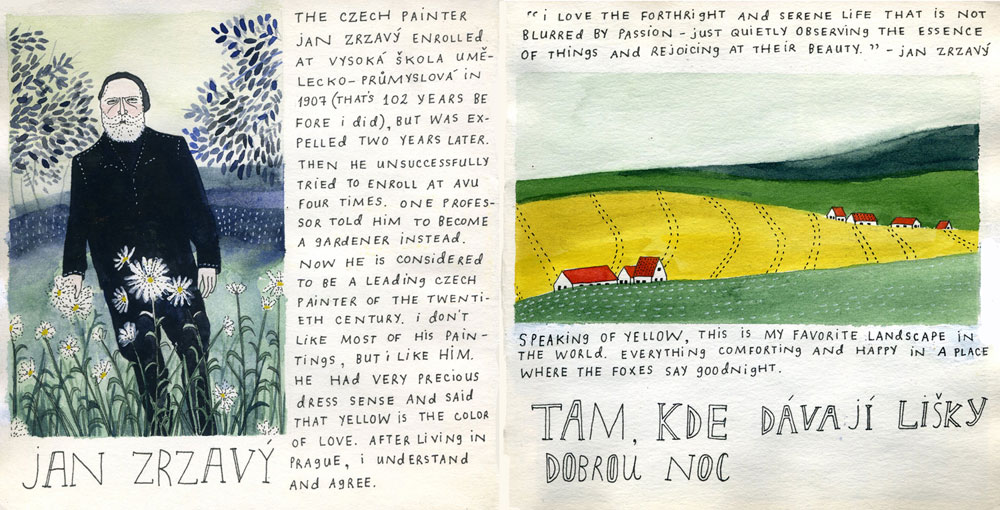 THE CZECH PAINTER
JAN ZRZAVÝ ENROLLED
AT VYSOKÁ ŠKOLA UMĚ-
LECKO-PRŮMYSLOVÁ IN
1907 (THAT'S 102 YEARS BE
FORE i DiD), BUT WAS EX-
PELLED TWO YEARS LATER.
THEN HE UNSUCCESSFULLY
TRIED TO ENROLL AT AVU
FOUR TIMES. ONE PROFES-
SOR TOLD HIM TO BECOME
A GARDENER INSTEAD.
NOW HE IS CONSIDERED
TO BE A LEADING CZECH
PAINTER OF THE TWENTI-
ETH CENTURY. i DON'T
LIKE MOST OF HiS PAIN-
TINGS, BUT i LIKE HiM.
HE HAD VERY PRECIOUS
DRESS SENSE AND SAID
THAT YELLOW IS THE COLOR
OF LOVE. AFTER LIVING IN
PRAGUE, i UNDERSTAND
AND AGREE.
JAN ZRZAVÝ
"i LOVE THE FORTHRIGHT AND SERENE LIFE THAT IS NOT
BLURRED BY PASSION - JUST QUIETLY OBSERVING THE ESSENCE
OF THINGS AND REJOICING AT THEIR BEAUTY." - JAN ZRZAVÝ
SPEAKING OF YELLOW, THIS IS MY FAVORITE LANDSCAPE IN
THE WORLD. EVERYTHING COMFORTING AND HAPPY IN A PLACE
WHERE THE FOXES SAY GOODNIGHT.
TAM, KDE DÁVAJÍ LIŠKY
DOBROU NOC